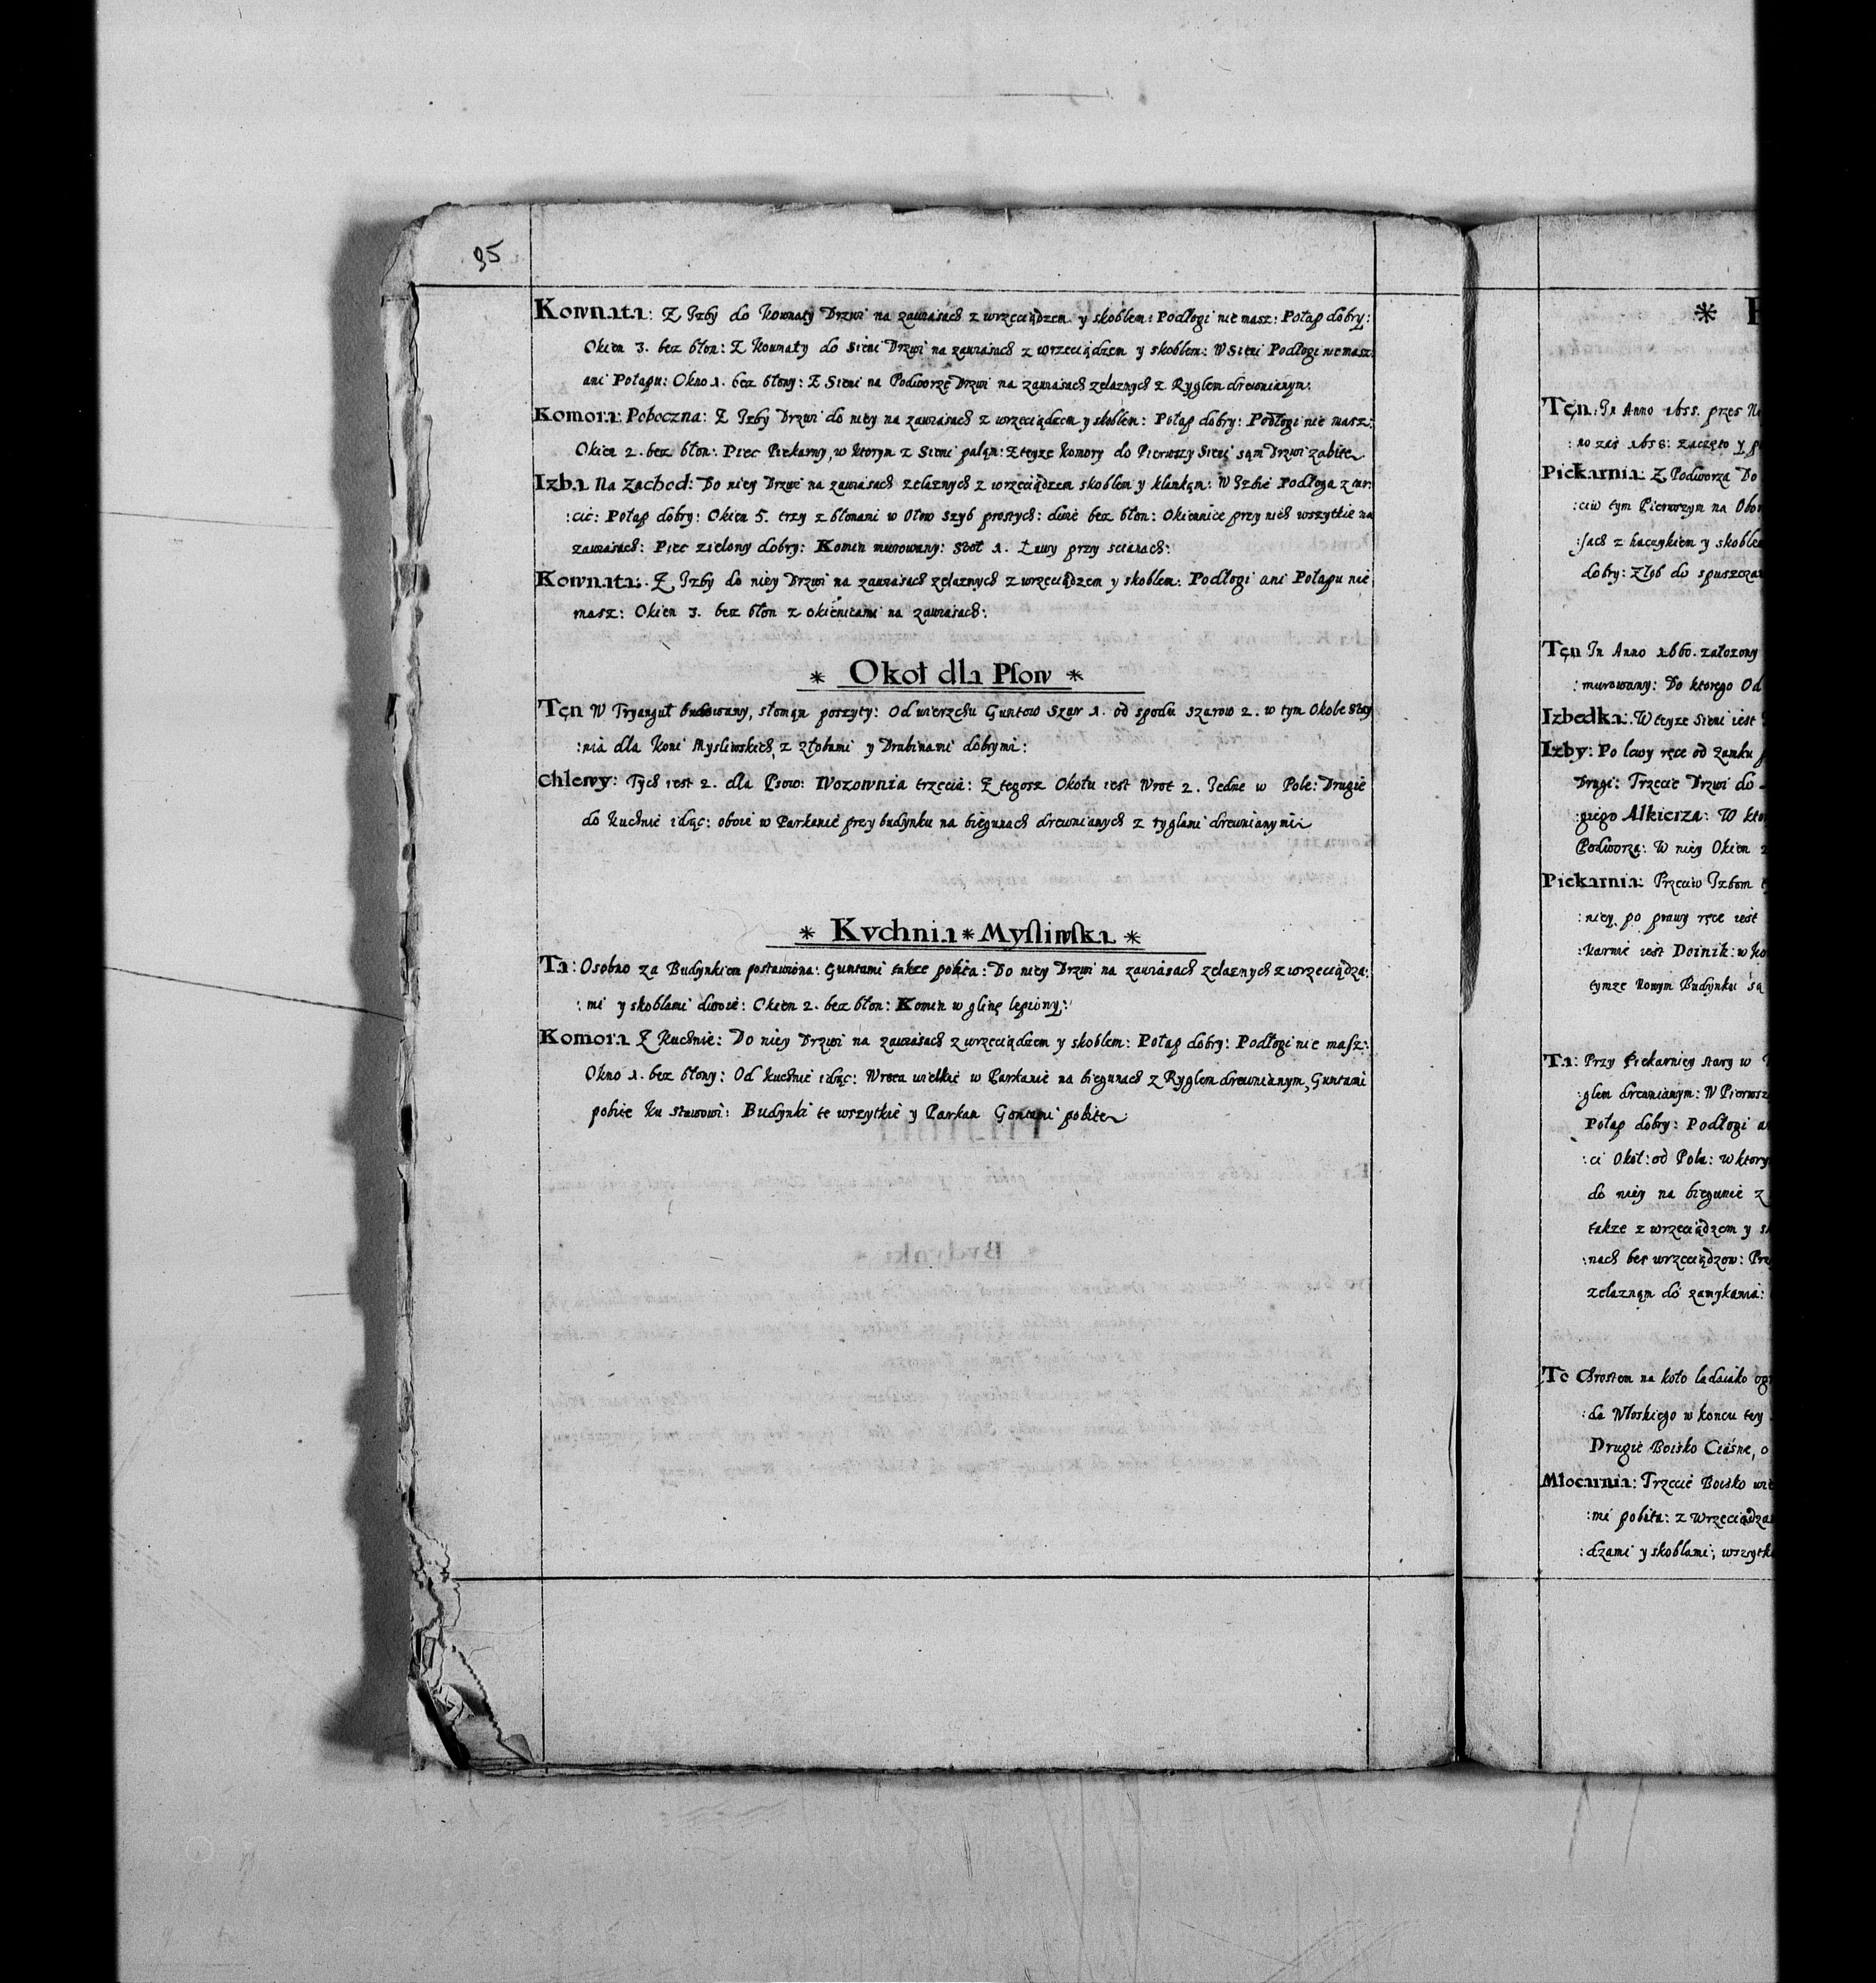 95
Kownata: Z Izby do Kownaty Drzwi na zawiasach z wrzeciądzem y skoblem: Podłogi nie masz: Potap dobry:
Okien 3. bez błon: Z Kownaty do Sieni Drzwi na zawiasach z wrzeciądzem y skoblem: W Sieni Podłogi nie masz
ani Potapu: Okno 1. bez błony: Z Sieni na Podworze Drzwi na zawiasach zelaznych z Ryglem drewnianym:
Komora Poboczna: Z Izby Drzwi do niey na zawiasach z wrzeciądzem y skoblem: Potap dobry: Podłogi nie masz:
Okien 2. bez błon: Piec Piekarny, w ktorym z Sieni palą: Z teyze Komory do Pierwszy Sieni są Drzwi zabite
Izba Na Zachod: Do niey Drzwi na zawiasach zelaznych z wrzeciądzem skoblem y klanką: W Izbie Podłoga z tar:
:cic: Potap dobry: Okien 5. trzy z błonami w Ołow szyb prostych: dwie bez błon: Okiennice przy nich wszytkie na
zawiasach: Piec zielony dobry: Komin murowany: Stoł 1. Ławy przy scianach:
Kownata: Z Izby do niey Drzwi na zawiasach zelaznych z wrzeciądzem y skoblem: Podłogi ani Potapu nie
masz: Okien 3. bez błon z okienicami na zawiasach:
* Okoł dla Psow *
Ten W Tryanguł budowany, słomą poszyty: Od wierzchu Guntow Szar 1. od spodu szarow 2. w tym Okole Stay
:nia dla Koni Mysliwskich, z złobami y Drabinami dobrymi:
Chlewy: Tych iest 2. dla Psow: Wozownia trzecia: Z tegosz Okołu iest Wrot 2. Iedne w Pole: Drugie
do Kuchnie idąc: oboie w Parkanie przy budynku na biegunach drewnianych z ryglami drewnianymi
* Kvchnia * Mysliwska *
Ta: Osobno za Budynkiem postawiona: Guntami takze pobita: Do niey Drzwi na zawiasach zelaznych z wrzeciądza:
:mi y skoblami dwoie: Okien 2. bez błon: Komin w glinę lepiony:
Komora Z Kuchnie: Do niey Drzwi na zawiasach z wrzeciądzem y skoblem: Potap dobry: Podłogi nie masz:
Okno 1. bez błony: Od Kuchnie idąc: Wrota wielkie w Parkanie na biegunach z Ryglem drewnianym, Guntami
pobite ku stawowi: Budynki te wszytkie y Parkan Gontami pobite
*
Ten: In Anno 1655. przes
:no zaś 1658: zaczęto y
Piekarnia: Z Podworza Do
:ciw tym Pierwszym na
:sach z haczykiem y skoblem
dobry: Złob do
Ten In Anno 1660. załozony
:murowany: Do ktorego Od
Izbedka: W teyze Sieni iest
Izby: Po lewy ręce od Zamku
Drugi: Trzecie Drzwi do
:giego Alkierza: W
Podworza: W niey Okien
Piekarnia: Przeciw Izbom
:niey, po prawy ręce iest
:karnie iest Doinik: w
tymze Nowym Budynku są
Ta: Przy Piekarniey stary w
:glem drewnianym: W
Potap dobry: Podłogi
:ci Okoł: od Pola: w
do niey na biegunie z
takze z wrzeciądzem y
:nach bes wrzeciądzow:
zelazną do zamykania:
To Chrostem na koło ladaiako
:da Włoskiego w koncu tey
Drugie Boisko Ciasne,
Młocarnia: Trzecie Boisko
:mi pobita: z
:dzami y skoblami;